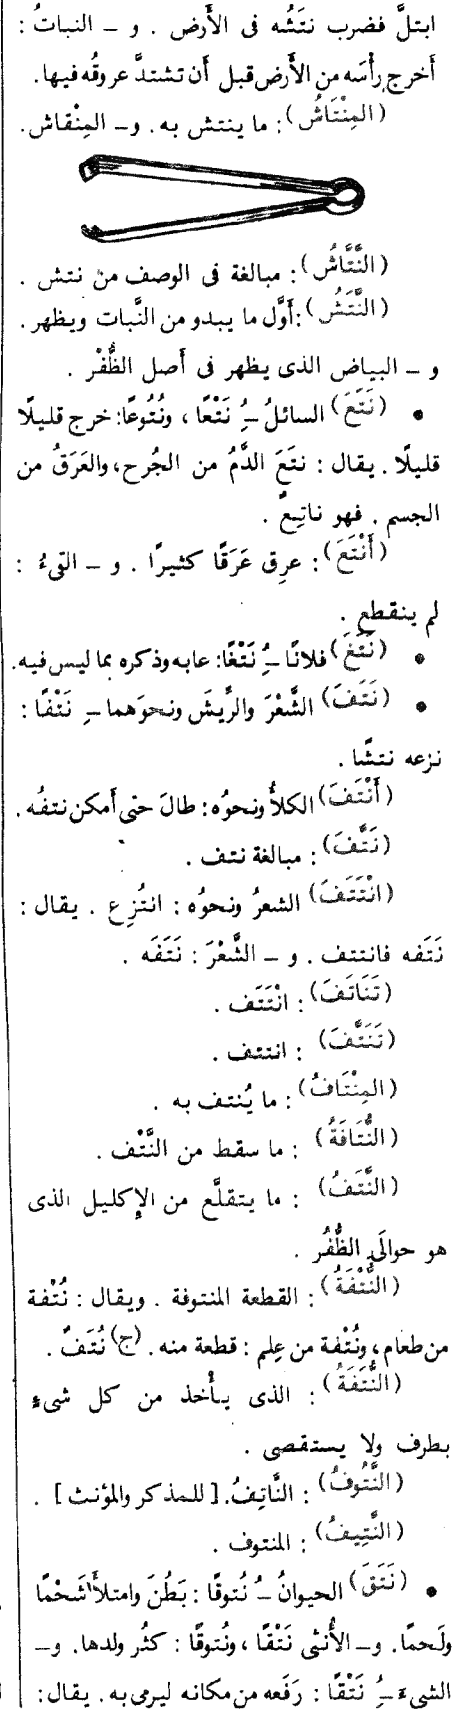 ابتلَّ فضرب نتَشُه فى الأَرض . و ــ النباتُ :
أَخرج رأْسَه من الأَرض قبل أَن تشتدَّ عروقُه فيها.
(المِنْتَاشُ): ما ينتش به. و ــ المِنْقاش.
(النَّتَّاشُ): مبالغة فى الوصف من نتش .
(النَّتَشُ): أَوَّل ما يبدو من النَّبات ويظهر.
و ــ البياض الذى يظهر فى أَصل الظُّفْر .
• (نَتَعَ) السائلُ ــُِ نَتْعًا ، ونُتُوعًا: خرج قليلًا
قليلًا . يقال : نتَعَ الدَّمُ من الجُرح، والعَرَقُ من
الجسم . فهو ناتِعٌ .
(أَنْتَعَ): عرِق عَرَقًا كثيرًا . و ــ القىءُ :
لم ينقطع .
• (نَتَغَ) فلانًا ــُِ نَتْغًا: عابه وذكره بما ليس فيه.
• (نَتَفَ) الشَّعْرَ والرِّيشَ ونحوَهما ــِ نَتْفًا :
نزعه نتشًا .
(أَنْتَفَ) الكلأُ ونحوُه: طالَ حتى أَمكن نتفُه.
(نَتَّفَ): مبالغة نتف .
(انْتَتَفَ) الشعرُ ونحوُه : انتُزِع . يقال :
نَتَفه فانتتف . و ــ الشَّعْرَ : نَتَفَه .
(تَنَاتَفَ): انْتَتَف .
(تَنَتَّفَ) : انتتف .
(المِنْتَافُ): ما يُنتف به .
(النُّتَافَةُ) : ما سقط من النَّتْف .
(النَّتَفُ) : ما يتقلَّع من الإِكليل الذى
هو حوالَىِ الظُّفُر .
(النُّتْفَةُ): القطعة المنتوفة . ويقال : نُتْفة
من طعام، ونُتْفة من عِلم : قطعة منه. (ج) نُتَفٌ .
(النُّتَفَةُ) : الذى يأْخذ من كل شىءٍ
بطرف ولا يستقصى .
(النَّتُوفُ) : النَّاتِفُ. [للمذكر والمؤنث] .
(النَّتِيفُ) : المنتوف .
• (نَتَقَ) الحيوانُ ــُ نُتوقًا : بَطُنَ وامتلأَ شَحْمًا
ولَحمًا. و ــ الأُنثى نَتْقًا ، ونُتوقًا : كثُر ولدها. و ــ
الشىءَ ــُِ نَتْقًا : رَفَعه من مكانه ليرمى به. يقال: